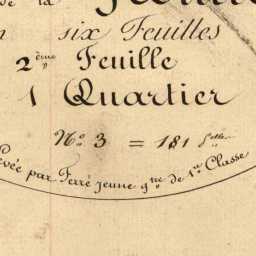 de la
six Feuilles
2ème Feuille
1 Quartier
No. 3 = 181 feuille
Levée par Ferré jeune gtre de 1re Classe